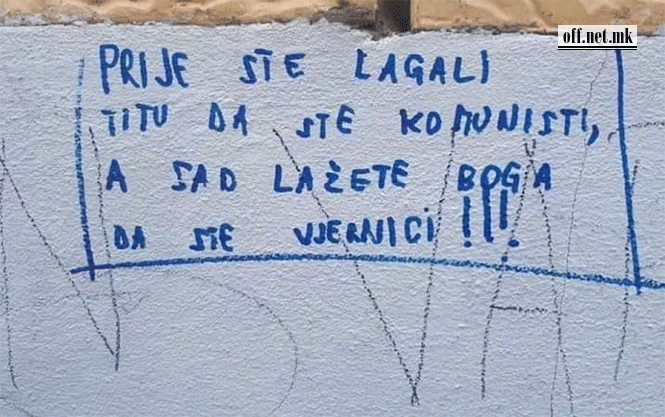 off.net.mk
PRIJE STE LAGALI
TITU DA STE KOMUNISTI,
A SAD LAŽETE BOGA
DA STE VJERNICI !!!